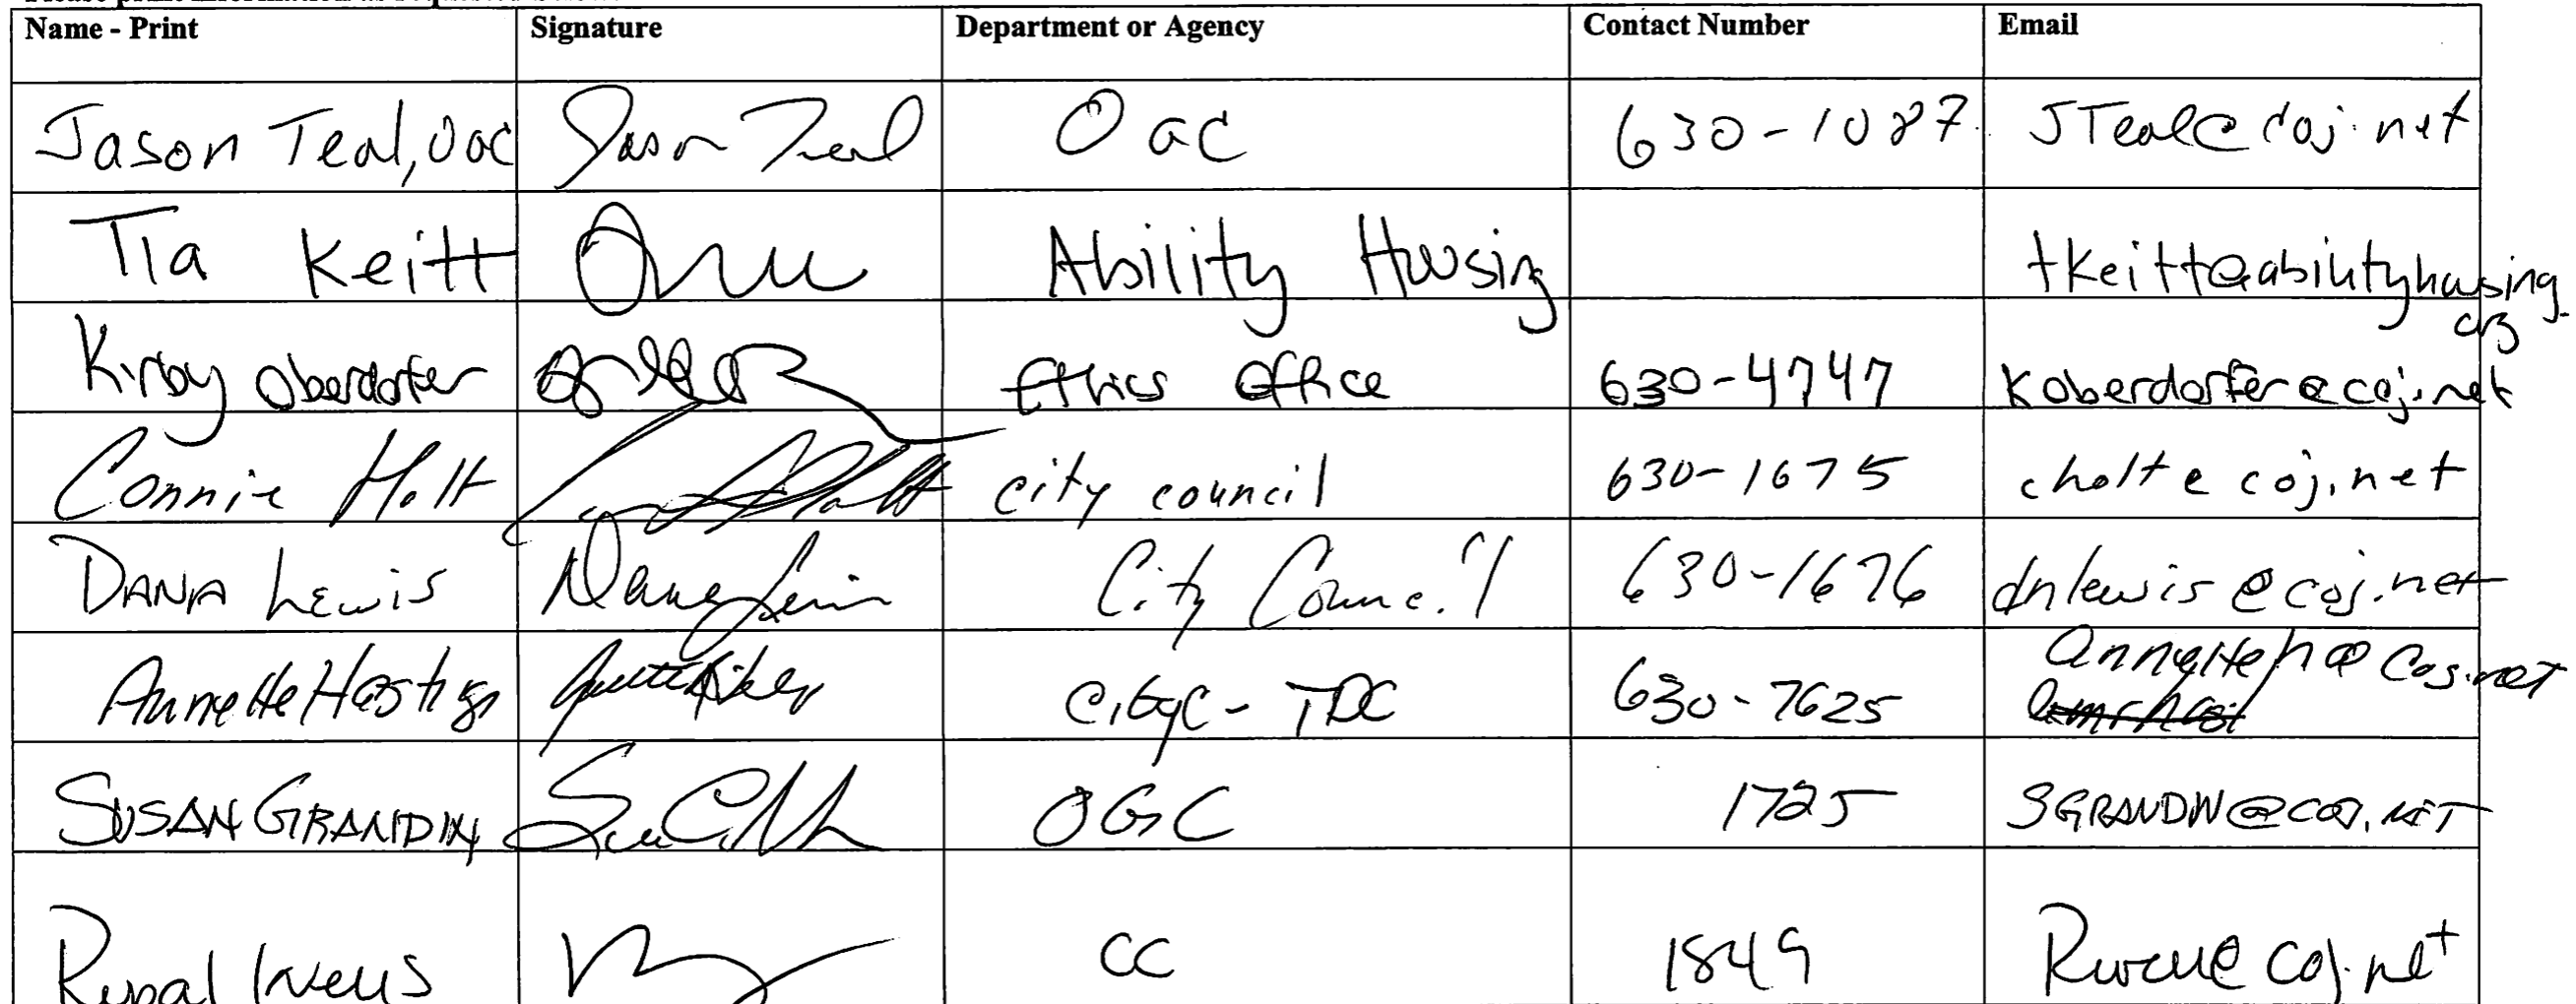 Name - Print Signature Department or Agency Contact Number Email
Jason Teal, OGC Jason Teal OGC 630-1087 JTeal@coj.net
Tia Keitt Ability Housing tkeitt@abilityhousing.
org
Kirby Oberdorfer Ethics Office 630-4747 Koberdorfer@coj.net
Connie Holt city council 630-1675 cholt@coj.net
DANA LEWIS Dana Lewis City Council 630-1676 dnlewis@coj.net
Annette Hastings CityC - TDC 630-7625 annetteh@coj.net
SUSAN GRANDIN OGC 1725 SGRANDIN@COJ.NET
CC 1849 coj.net